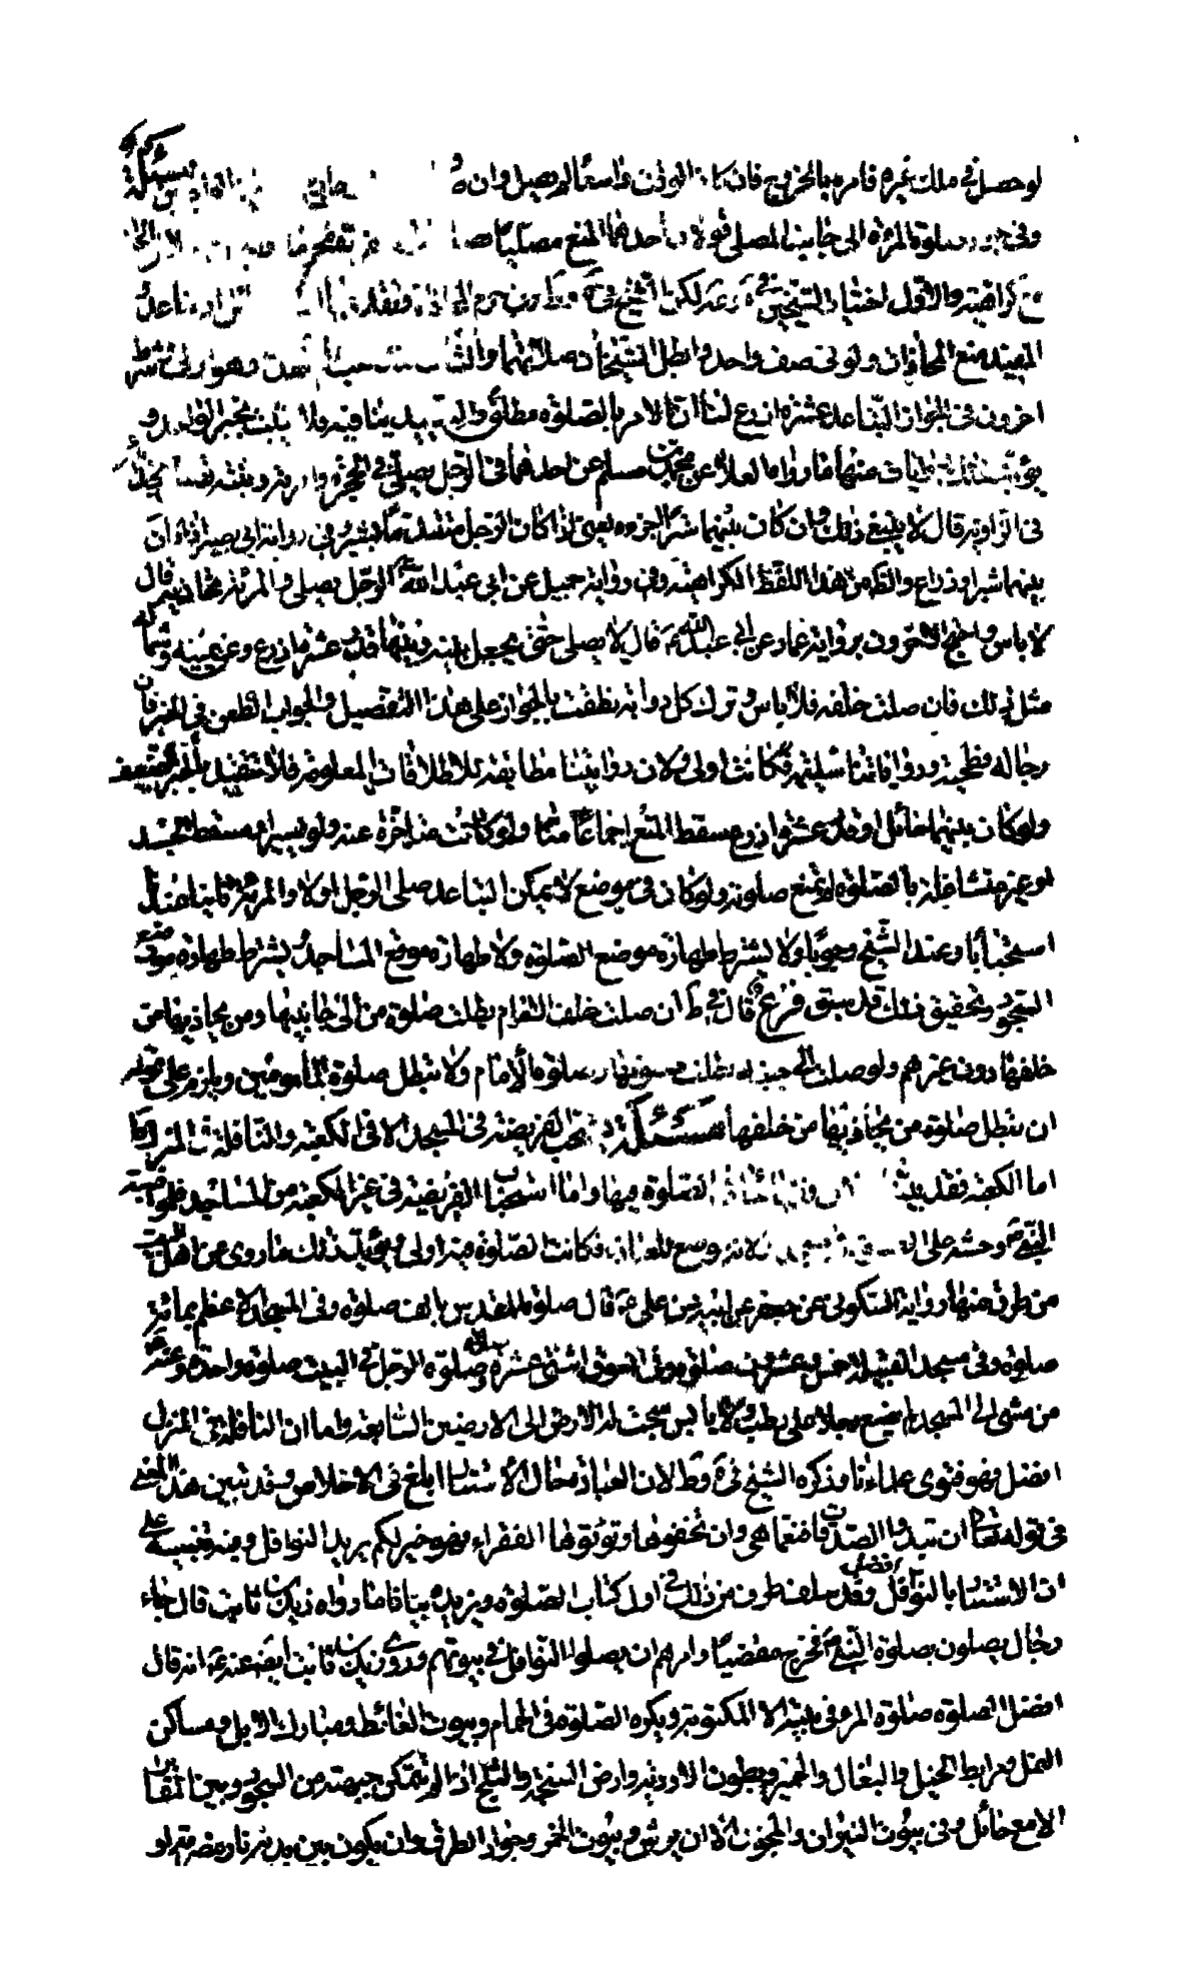 لو حصل في ملك غيره فامره بالخروج فان كان الوقت واسعا لم يصل وان مسئلة
وفي جواز صلوة المرءة الى جانب المصلي قولان احدهما المنع
والاول اختيار الشيخين لكن الشيخ في
المفيد منع المحاذاة ولو في صف واحد وابطل الشيخان صلاتهما
اخرون في الجواز التباعد عشرة اذرع لنا ان الامر بالصلوة مطلق والتقييد ينافيه ولا يثبت بخبر الواحد و
يؤيد ذلك روايات منها ما رواه العلا عن محمد بن مسلم عن احدهما في الرجل يصلي في الحجرة وامرءته وبنته تصلي بحذاه
في الزاوية قال لا ينبغي ذلك وان كان بينهما شبرا اجزءه يعني اذا كان الرجل متقدما بشبر وفي رواية ابي بصير اذا كان
بينهما شبر او ذراع والظاهر من هذا اللفظ الكراهية وفي رواية جميل عن ابي عبد الله ع الرجل يصلي والمرءة بحذائه قال
لا باس واحتج الاخرون برواية عمار عن ابي عبد الله ع قال لا يصلي حتى يجعل بينه وبينها قدر عشرة اذرع وعن يمينه وشماله
مثل ذلك فان صلت خلفه فلا باس وترك كل رواية نطقت بالجواز على هذا التفصيل والجواب الطعن في الخبر فان
رجاله فطحية ورواياتنا سليمة فكانت اولى ولان روايتنا مطابقة للاطلاقات المعلومة فلا تتقيد بالخبر الضعيف
ولو كان بينهما حائل او قدر عشرة اذرع سقط المنع اجماعا منا ولو كانت متاخرة عنه ولو بيسير او مسقط الجسد
او غير متشاغلة بالصلوة لم تمنع صلوته ولو كان في موضع لا يمكن التباعد صلى الرجل اولا والمرءة ثانيا عندنا
استحبابا وعند الشيخ وجوبا ولا يشترط طهارة موضع الصلوة ولا طهارة موقع المساجد بل يشترط طهارة موضع
السجود وتحقيق ذلك قد سبق فرع قال في ط ان صلت خلف الامام بطلت صلوة من الى جانبيها ومن يحاذيها من
خلفها دون غيرهم ولو صلت الى جنب الامام بطلت صلوتها وصلوة الامام ولا تبطل صلوة المأمومين ويلزم على قوله
ان تبطل صلوة من يحاذيها من خلفها مسئلة تستحب الفريضة في المسجد الا في الكعبة والنافلة في المنزل
اما الكعبة فقد بينا الصلوة فيها واما استحباب الفريضة في غير الكعبة من المساجد
النبي ص وحثه على فكانت الصلوة فيه اولى ويؤيد ذلك ما روي عن اهل البيت
من طرق منها رواية السكوني عن جعفر عن ابيه عن علي ع قال صلوة المقدس بالف صلوة وفي المسجد الاعظم بمائة
صلوة وفي مسجد القبيلة خمس وعشرون صلوة وفي السوق اثنتى عشرة صلوة وصلوة الرجل في البيت صلوة واحدة وعنه ع
من مشى الى المسجد لم يضع رجلا على رطب ولا يابس سبحت له الارض الى الارضين السابعة واما ان النافلة في المنزل
افضل فهو فتوى علماءنا وذكره الشيخ في ية وط لان العبادة حال الاستتار ابلغ في الاخلاص وقد تبين هذا المعنى
في قوله تعالى ان تبدوا الصدقات فنعما هي وان تخفوها وتؤتوها الفقراء فهو خير لكم يريد النوافل وفيه تنبيه على
ان الاستتار بالنوافل افضل وقد سلف طرف من ذلك في اول كتاب الصلوة ويزيده بيانا ما رواه زيد بن ثابت قال جاء
رجال يصلون بصلوة النبي ص فخرج مغضبا وامرهم ان يصلوا النوافل في بيوتهم وروى زيد بن ثابت ايضا عنه ع انه قال
افضل الصلوة صلوة المرء في بيته الا المكتوبة ويكره الصلوة في الحمام وبيوت الغائط ومبارك الابل ومساكن
النمل ومرابط الخيل والبغال والحمير وبطون الاودية وارض السبخة والثلج اذا لم تتمكن جبهته من السجود وبين المقابر
الا مع حائل وفي بيوت النيران والمجوس الا ان يرش وبيوت الخمر وجواد الطرق وان يكون بين يديه نار مضرمة او